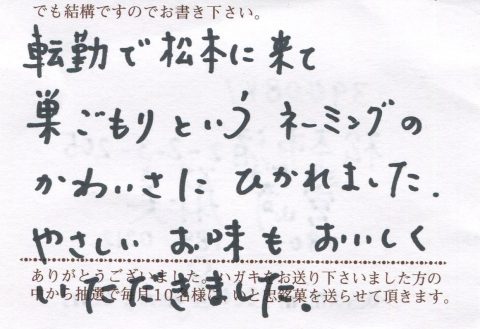 でも結構ですのでお書き下さい。
転勤で松本に来て
巣ごもりという ネーミングの
かわいさに ひかれました.
やさしい お味も おいしく
ありがとうございました。ハガキをお送り下さいました方の
いただきました.
中から抽選で毎月10名様に、いと忠銘菓を送らせて頂きます。